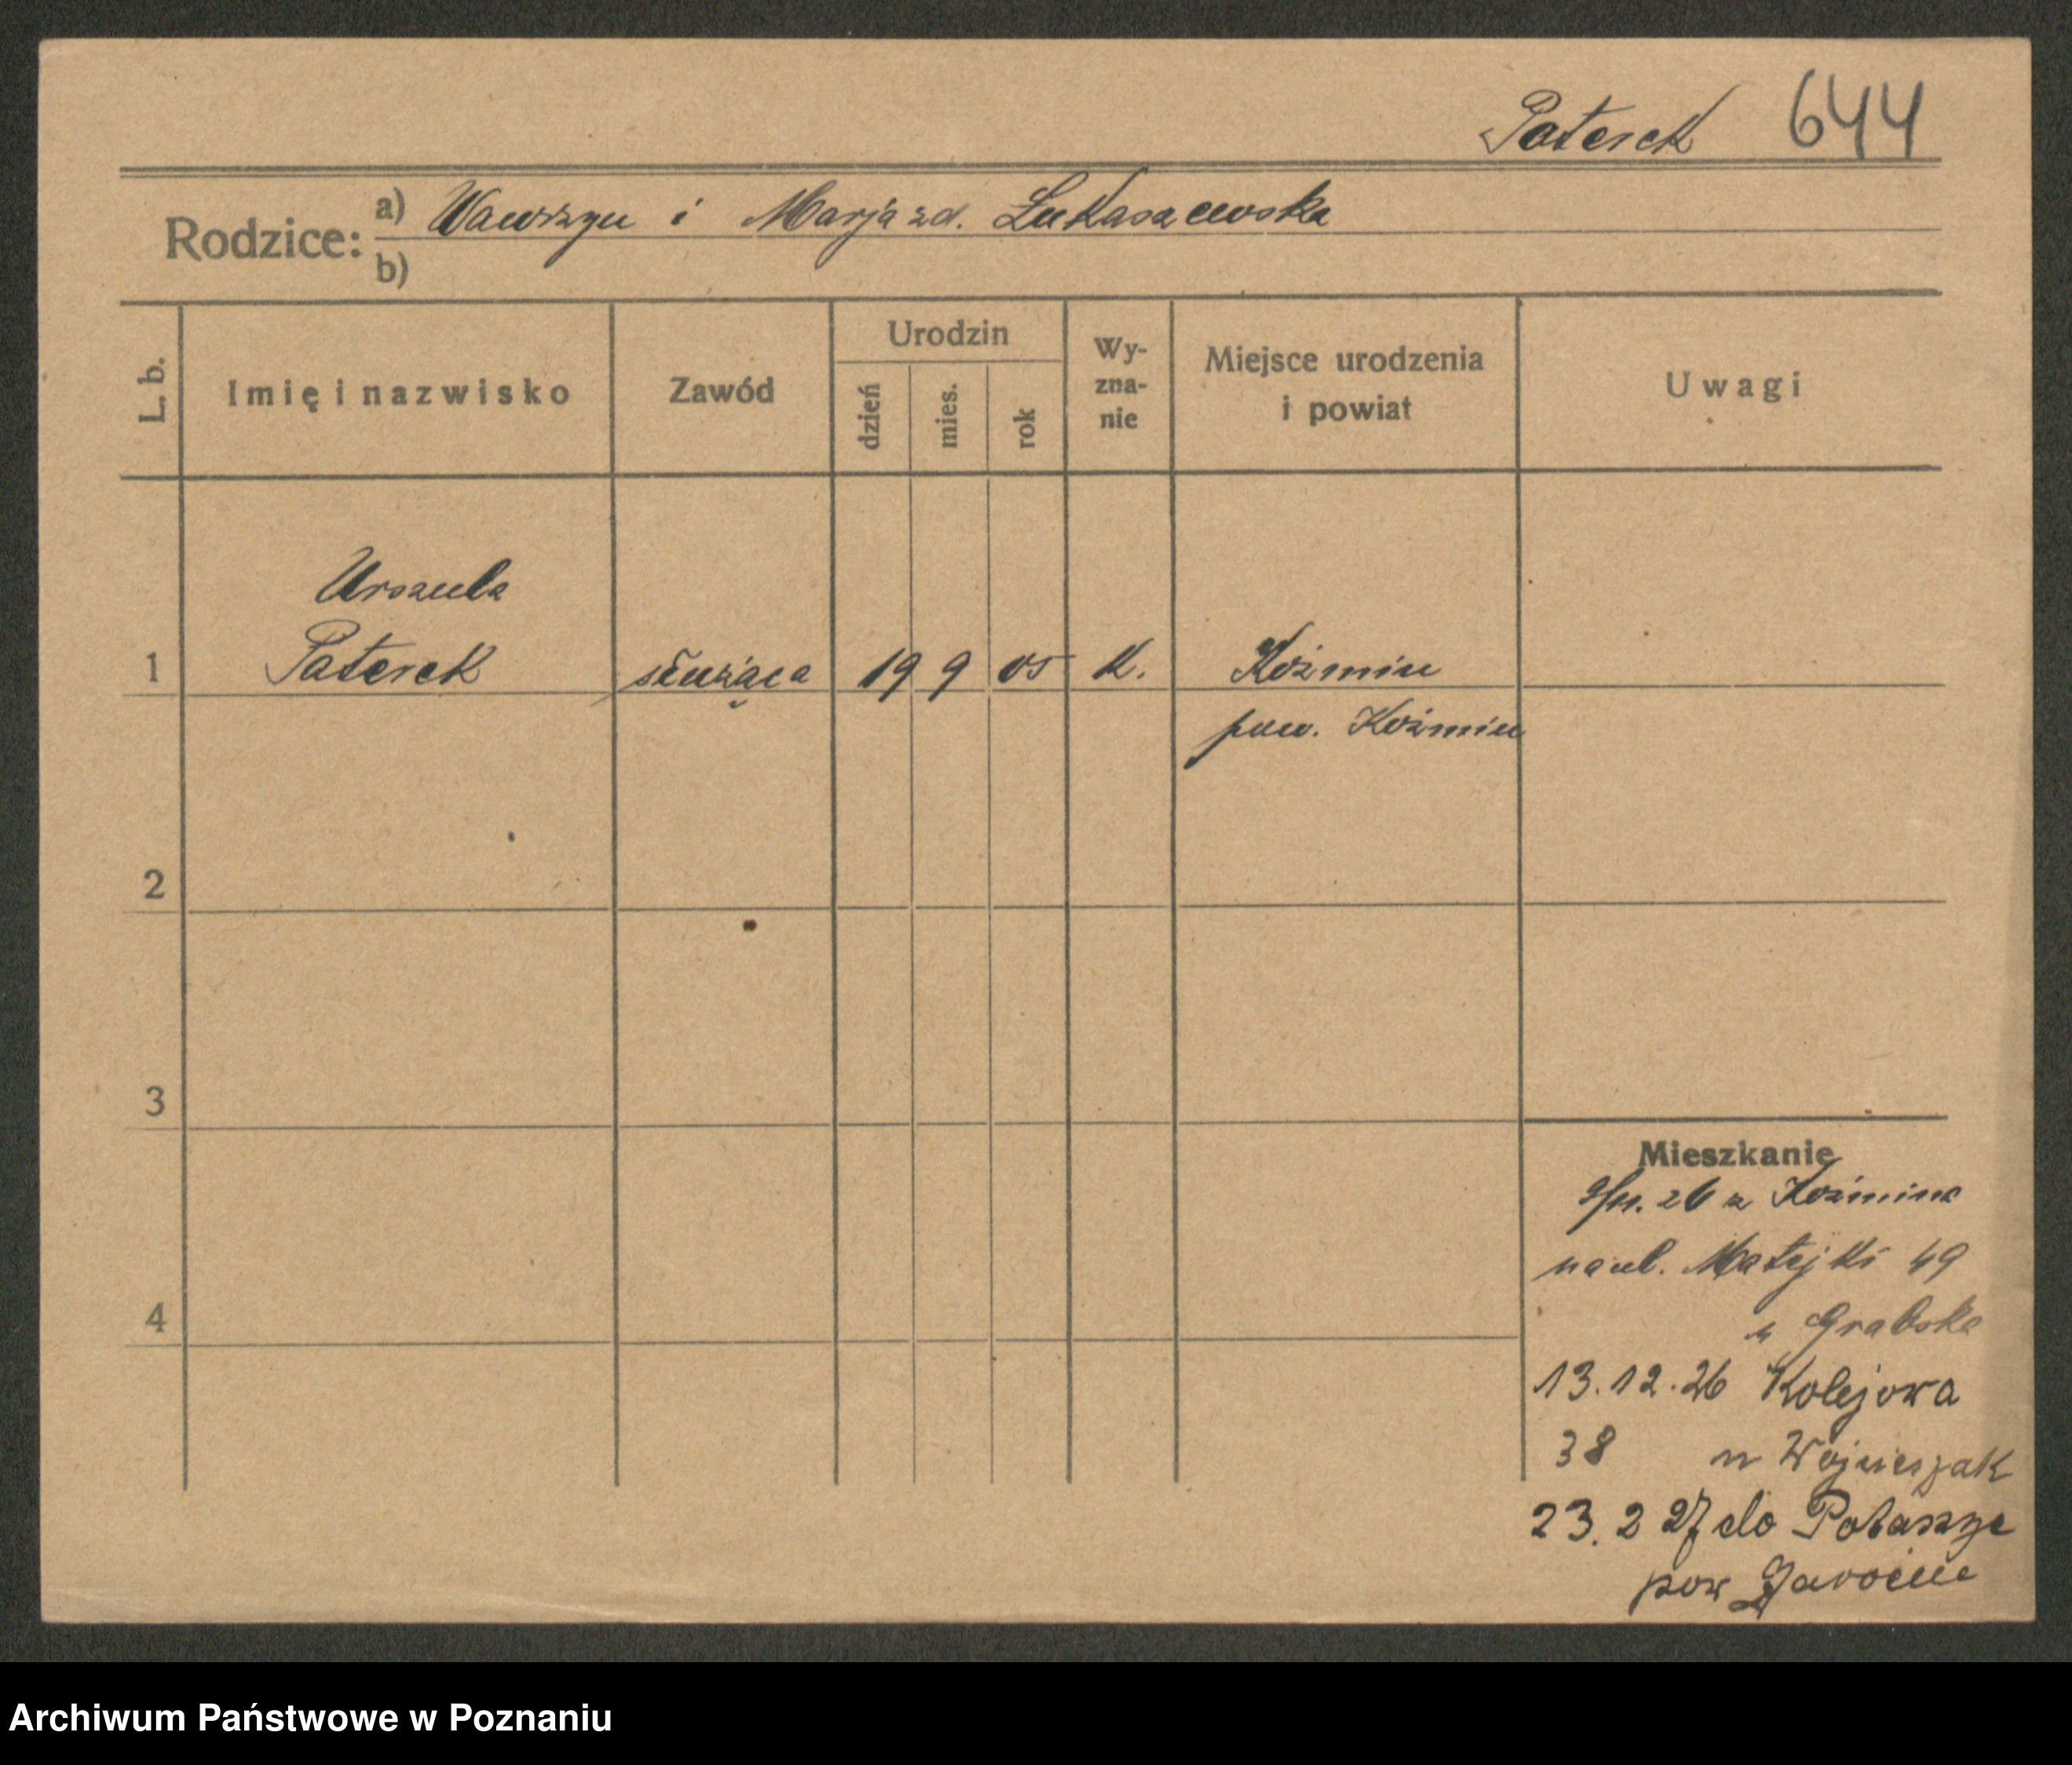 Paterek 644
Rodzice: a) Wawrzyn i Marja zd. Łukaszewska
b)
L. b. Imię i nazwisko Zawód Urodzin dzień mies. rok Wy-zna-nie Miejsce urodzenia i powiat Uwagi
Urszula
1 Paterek służąca 19 9 05 K. Koźmin
pow. Koźmin
2
3
Mieszkanie
9/11. 26 z Koźmina
na ul. Matejki 49
4
u Grabska
13.12.26 Kolejowa
38 u Wojcieszak
23.2 27 do Potarzyc
pow Jarocin
Archiwum Państwowe w Poznaniu